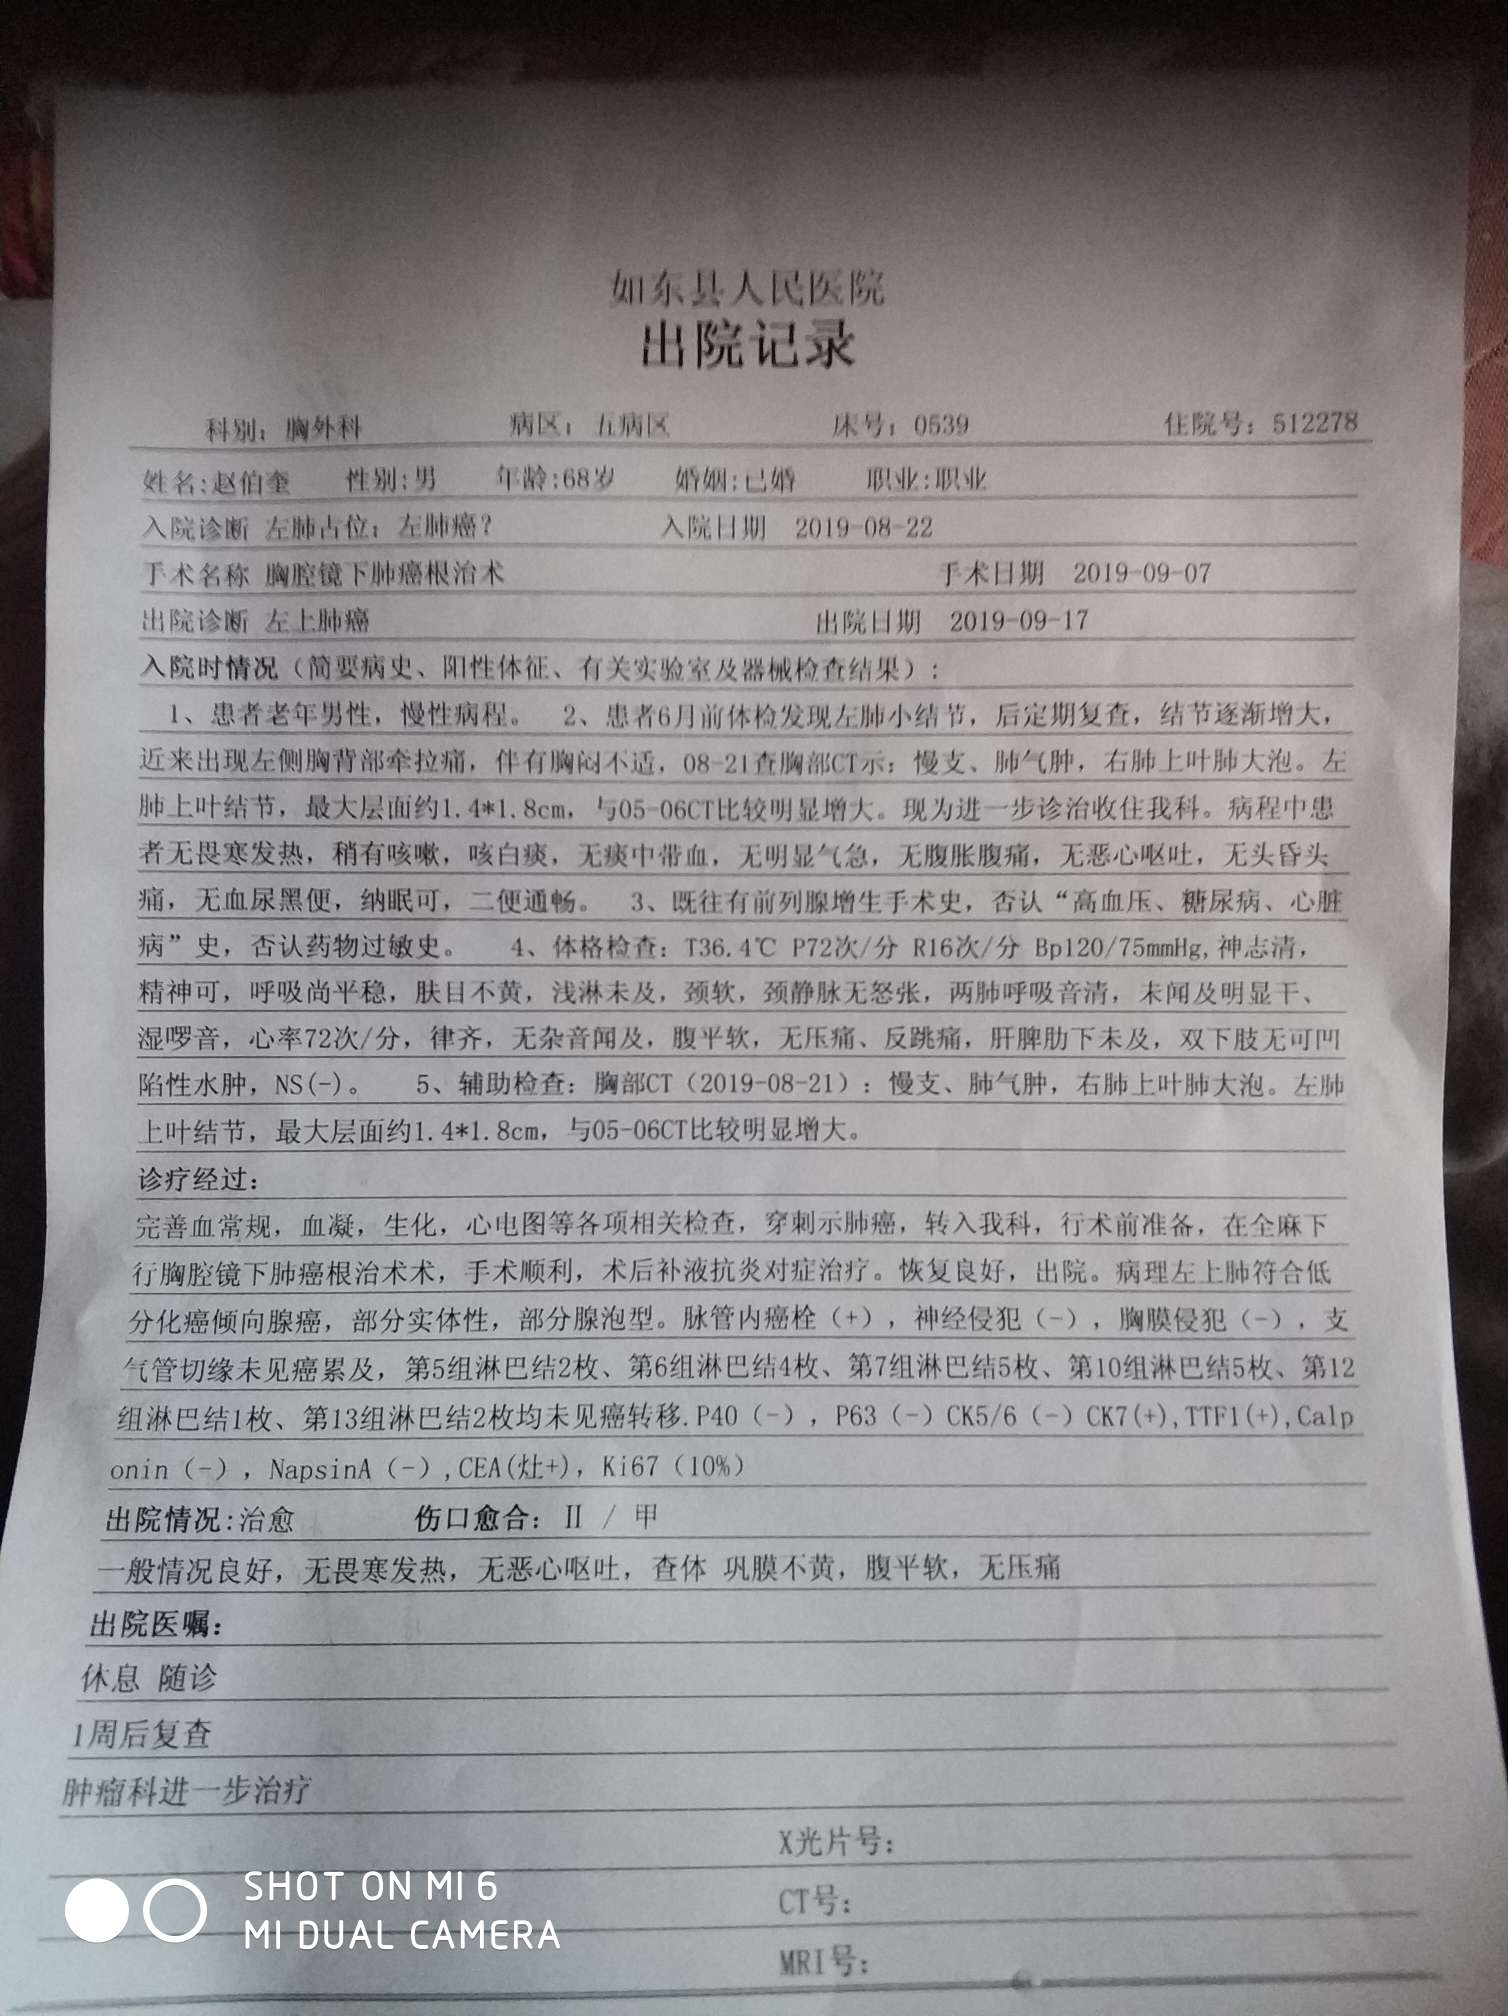 如东县人民医院
出院记录
科别：胸外科 病区：五病区 床号：0539 住院号：512278
姓名:赵伯奎 性别:男 年龄:68岁 婚姻:已婚 职业:职业
入院诊断 左肺占位；左肺癌？ 入院日期 2019-08-22
手术名称 胸腔镜下肺癌根治术 手术日期 2019-09-07
出院诊断 左上肺癌 出院日期 2019-09-17
入院时情况（简要病史、阳性体征、有关实验室及器械检查结果）：
1、患者老年男性，慢性病程。 2、患者6月前体检发现左肺小结节，后定期复查，结节逐渐增大，
近来出现左侧胸背部牵拉痛，伴有胸闷不适，08-21查胸部CT示：慢支、肺气肿，右肺上叶肺大泡。左
肺上叶结节，最大层面约1.4*1.8cm，与05-06CT比较明显增大。现为进一步诊治收住我科。病程中患
者无畏寒发热，稍有咳嗽，咳白痰，无痰中带血，无明显气急，无腹胀腹痛，无恶心呕吐，无头昏头
痛，无血尿黑便，纳眠可，二便通畅。 3、既往有前列腺增生手术史，否认“高血压、糖尿病、心脏
病”史，否认药物过敏史。 4、体格检查：T36.4℃ P72次/分 R16次/分 Bp120/75mmHg,神志清，
精神可，呼吸尚平稳，肤目不黄，浅淋未及，颈软，颈静脉无怒张，两肺呼吸音清，未闻及明显干、
湿啰音，心率72次/分，律齐，无杂音闻及，腹平软，无压痛、反跳痛，肝脾肋下未及，双下肢无可凹
陷性水肿，NS(-)。 5、辅助检查：胸部CT（2019-08-21）：慢支、肺气肿，右肺上叶肺大泡。左肺
上叶结节，最大层面约1.4*1.8cm，与05-06CT比较明显增大。
诊疗经过：
完善血常规，血凝，生化，心电图等各项相关检查，穿刺示肺癌，转入我科，行术前准备，在全麻下
行胸腔镜下肺癌根治术术，手术顺利，术后补液抗炎对症治疗。恢复良好，出院。病理左上肺符合低
分化癌倾向腺癌，部分实体性，部分腺泡型。脉管内癌栓（+），神经侵犯（-），胸膜侵犯（-），支
气管切缘未见癌累及，第5组淋巴结2枚、第6组淋巴结4枚、第7组淋巴结5枚、第10组淋巴结5枚、第12
组淋巴结1枚、第13组淋巴结2枚均未见癌转移.P40（-），P63（-）CK5/6（-）CK7(+),TTF1(+),Calp
onin（-），NapsinA（-）,CEA(灶+)，Ki67（10%）
出院情况:治愈 伤口愈合：Ⅱ / 甲
一般情况良好，无畏寒发热，无恶心呕吐，查体 巩膜不黄，腹平软，无压痛
出院医嘱：
休息 随诊
1周后复查
肿瘤科进一步治疗
X光片号：
CT号：
MRI号：
SHOT ON MI 6
MI DUAL CAMERA